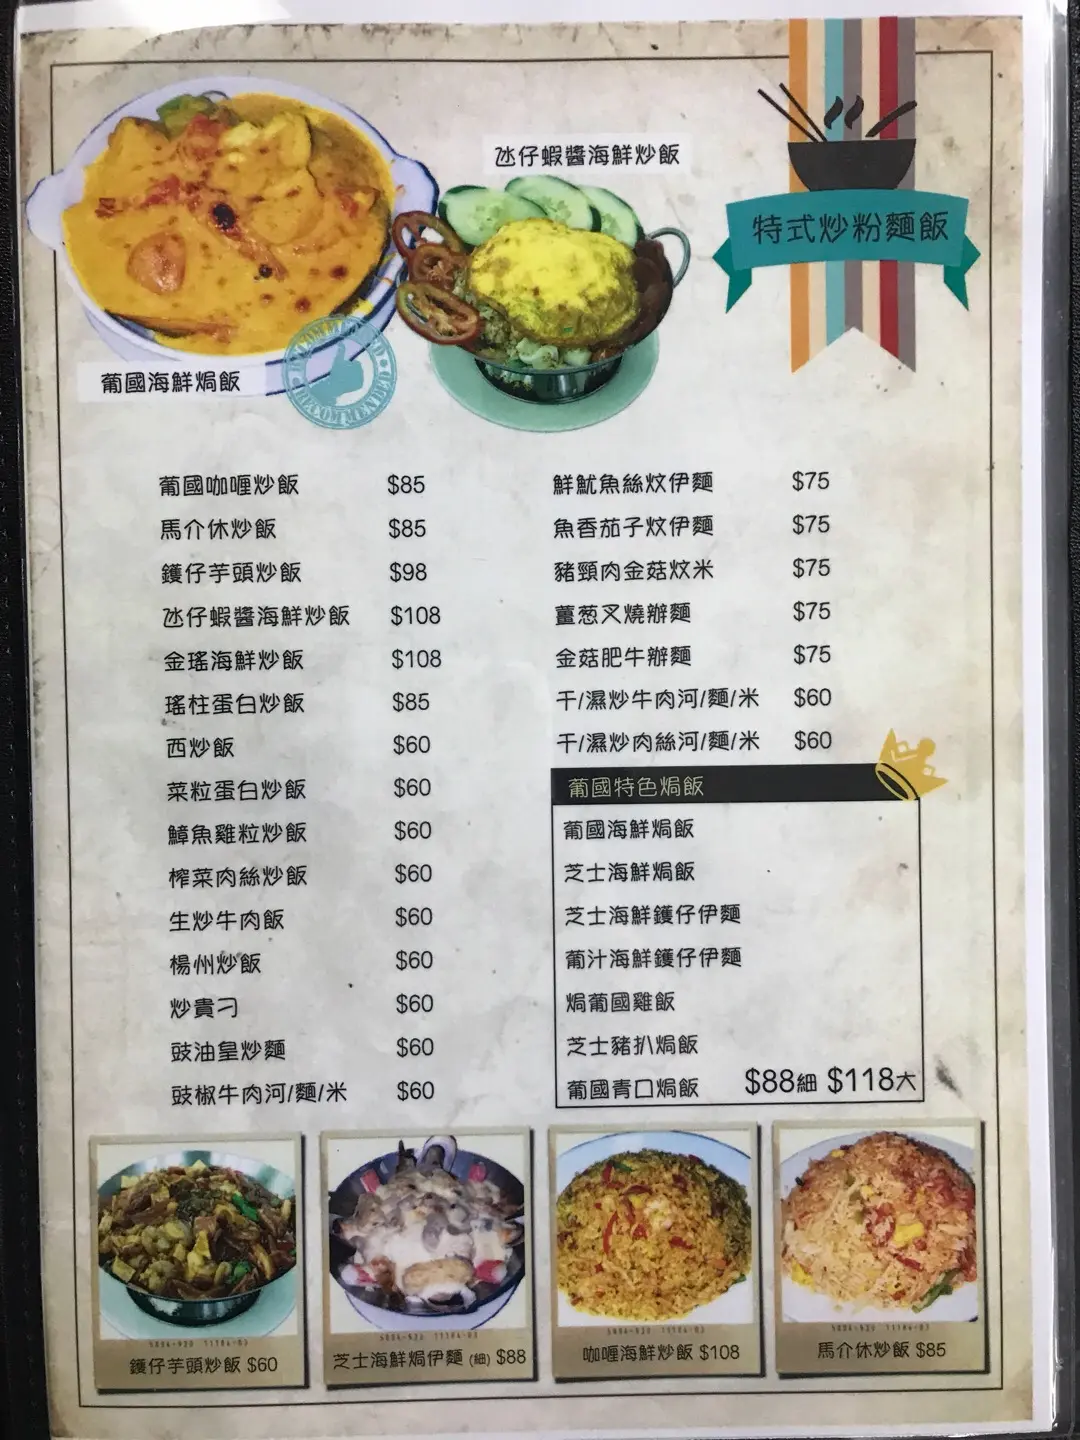 氹仔蝦醬海鮮炒飯
特式炒粉麵飯
葡國海鮮焗飯
RECOMMENDED
葡國咖喱炒飯 $85
馬介休炒飯 $85
鑊仔芋頭炒飯 $98
氹仔蝦醬海鮮炒飯 $108
金瑤海鮮炒飯 $108
瑤柱蛋白炒飯 $85
西炒飯 $60
菜粒蛋白炒飯 $60
鱆魚雞粒炒飯 $60
榨菜肉絲炒飯 $60
生炒牛肉飯 $60
楊州炒飯 $60
炒貴刁 $60
豉油皇炒麵 $60
豉椒牛肉河/麵/米 $60
鮮魷魚絲炆伊麵 $75
魚香茄子炆伊麵 $75
豬頸肉金菇炆米 $75
薑葱叉燒辦麵 $75
金菇肥牛辦麵 $75
干/濕炒牛肉河/麵/米 $60
干/濕炒肉絲河/麵/米 $60
葡國特色焗飯
葡國海鮮焗飯
芝士海鮮焗飯
芝士海鮮鑊仔伊麵
葡汁海鮮鑊仔伊麵
焗葡國雞飯
芝士豬扒焗飯
葡國青口焗飯 $88細 $118大
鑊仔芋頭炒飯 $60
芝士海鮮焗伊麵 (細) $88
咖喱海鮮炒飯 $108
馬介休炒飯 $85